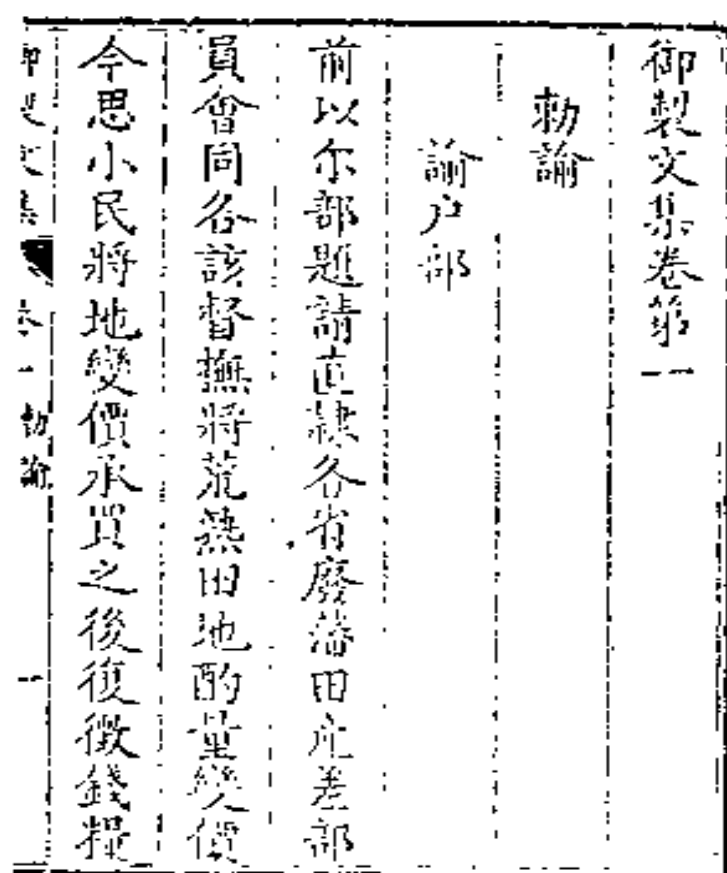 御製文集卷第一
勅諭
諭户部
前以尔部題請直隷各省廢藩田産差部
員會同各該督撫將荒熟田地酌量變價
今思小民將地變價承買之後復徴錢糧
御製文集 卷一 勅諭 一